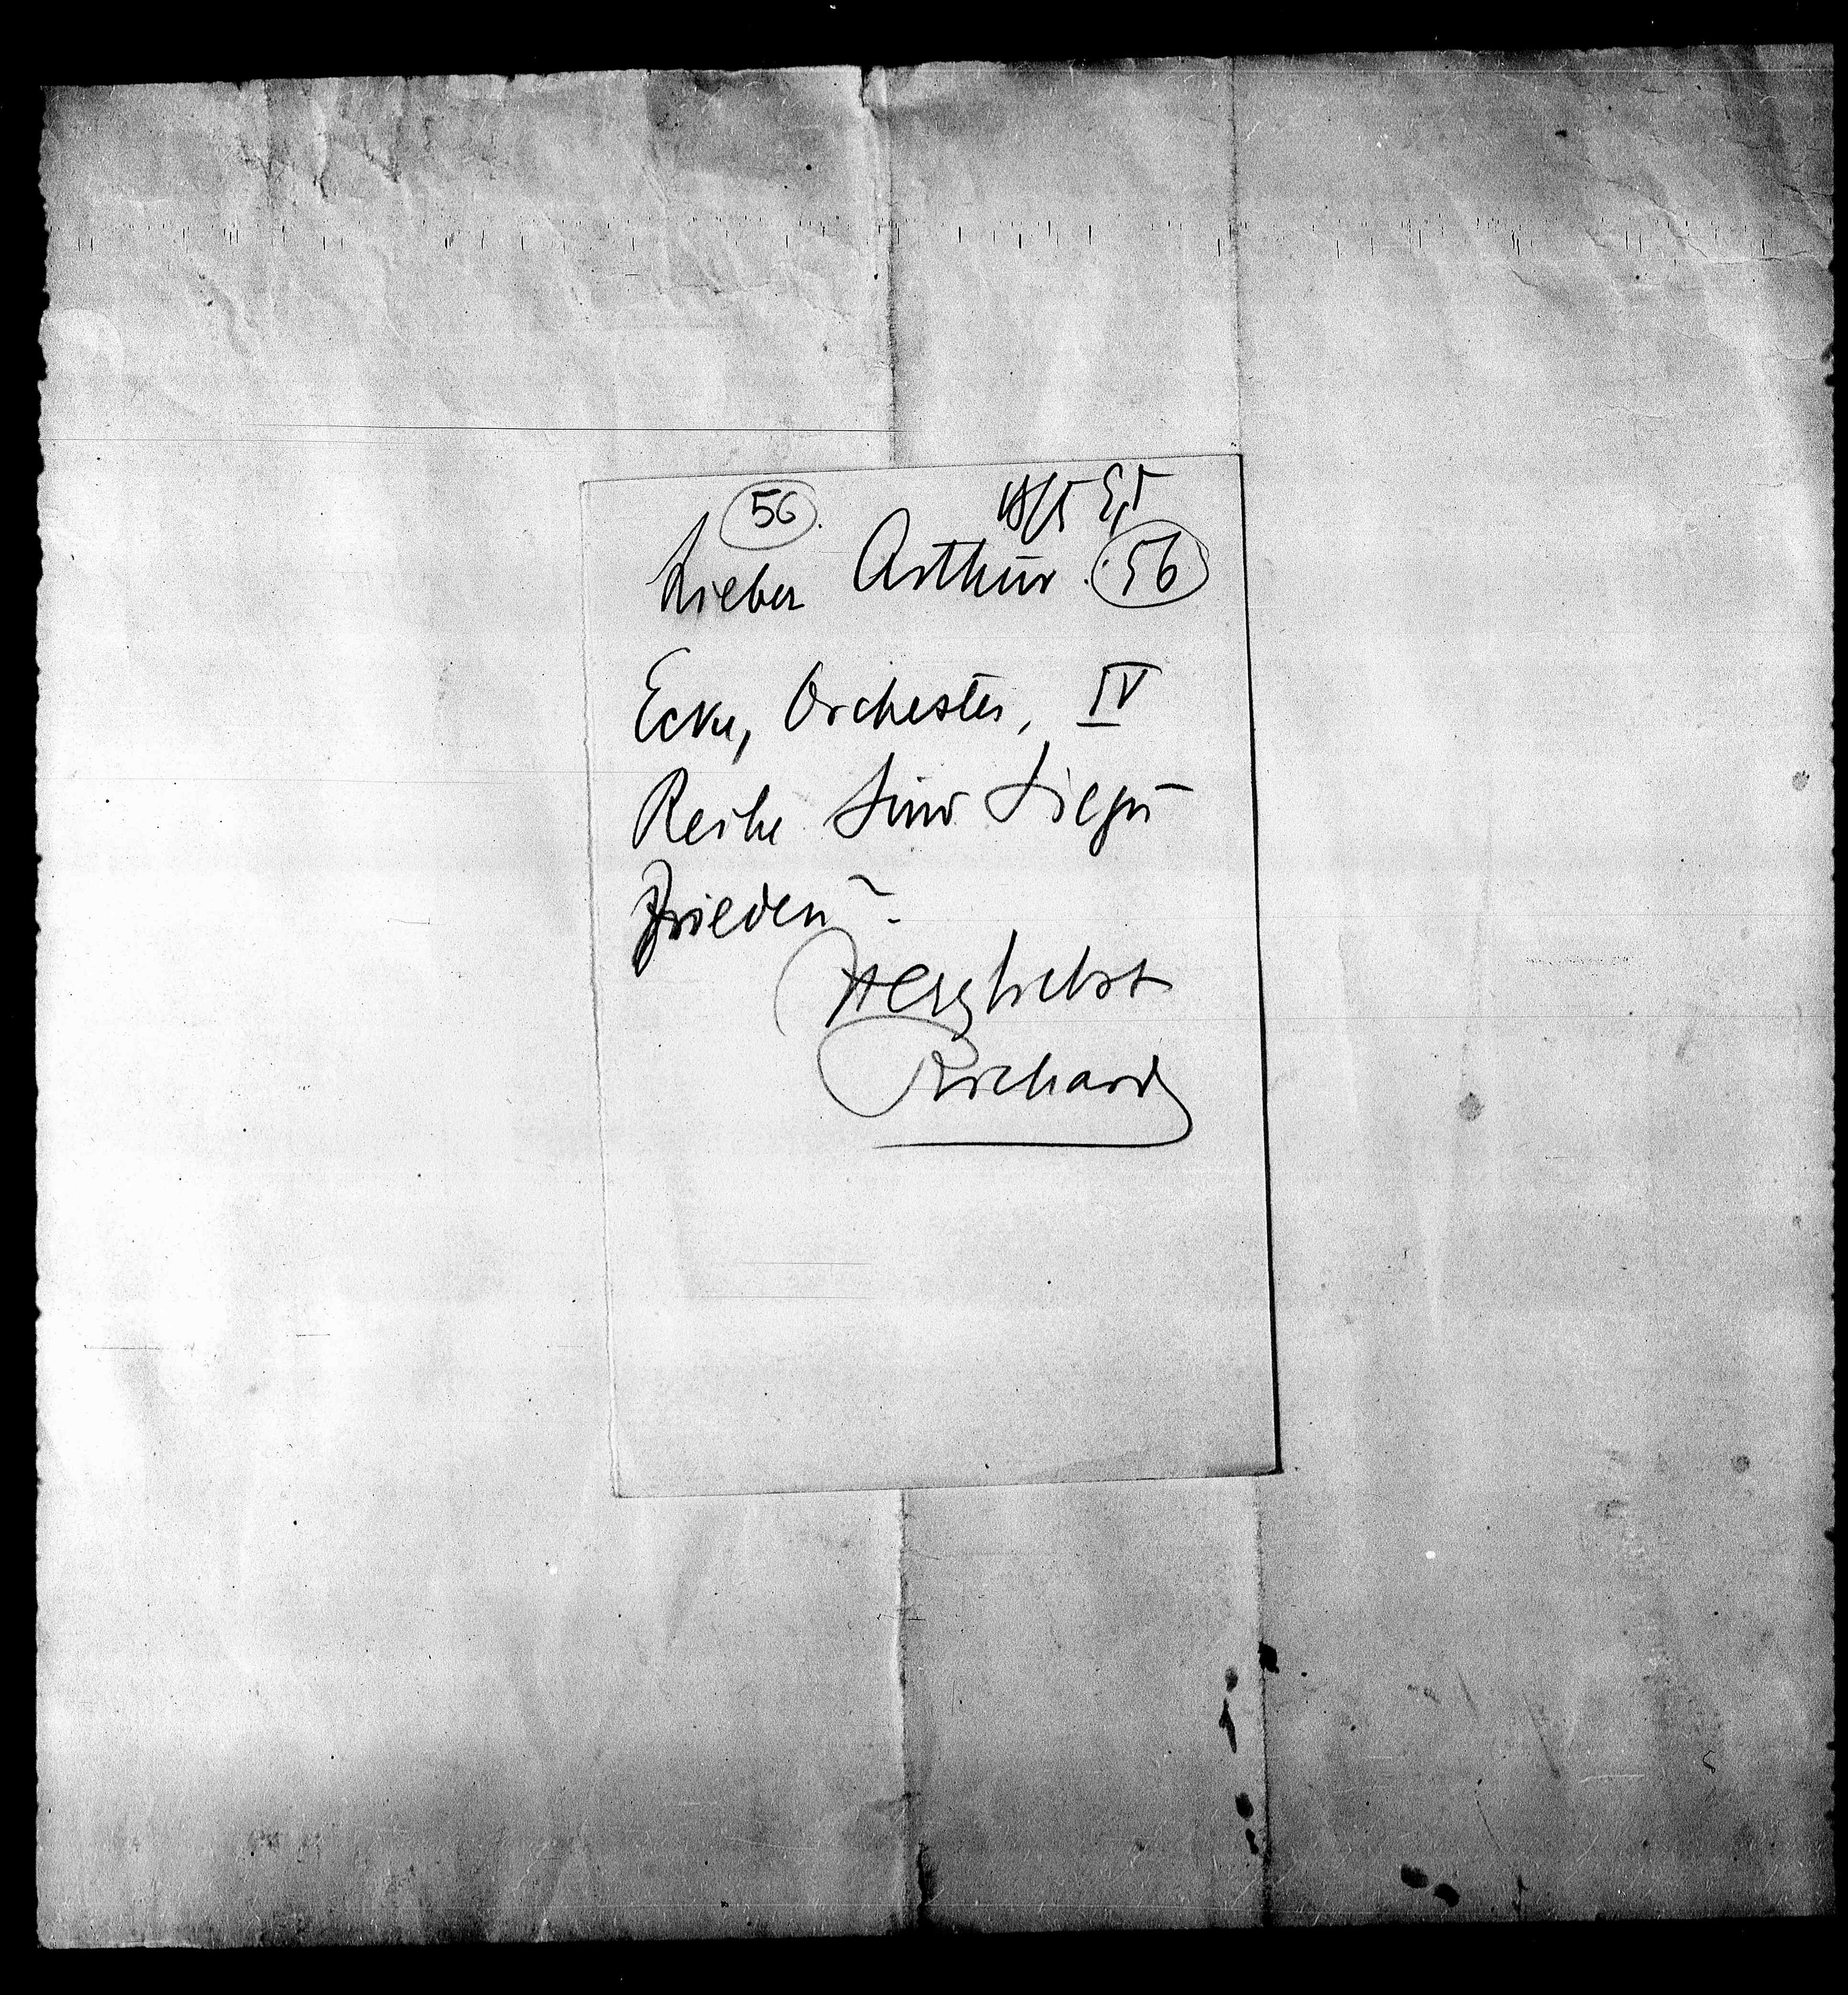 56
18/5 95
Lieber Arthur. 56
Ecke, Orchester, IV
Reihe. Sind Sie zu
frieden?
Herzlichst
Richard